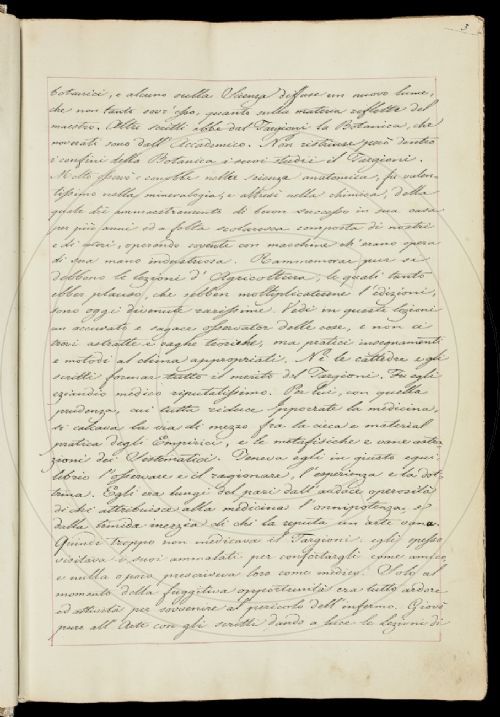 3
botanici, e alcuno sulla Scienza diffuse un nuovo lume,
che non tanto sovr'esso, quanto sulla materia reflette del
maestro. Altri scritti ebbe dal Targioni la Botanica, che
noverati sono dall'Accademico. Non ristrinse però dentro
i confini della Botanica i suoi studi il Targioni.
Molto osservò e conobbe nella scienza anatomica, fu valen-
tissimo nella mineralogia, e altresì nella chimica, della
quale diè ammaestramento di buon successo in sua casa
per più anni ed a folta scolaresca composta di nostri
e di esteri, operando sovente con macchine ch'erano opera
di sua mano industriosa. Rammemorar pur si
debbono le lezioni d'Agricoltura, le quali tanto
ebber plauso, che sebben moltiplicatesene l'edizioni,
sono oggi divenute rarissime. Vedi in queste lezioni
un accurato e sagace osservator delle cose, e non ci
trovi astratte e vaghe teoriche, ma pratici insegnamenti
e metodi al clima appropriati. Nè le cattedre e gli
scritti formar tutto il merito del Targioni. Fu egli
eziandio medico riputatissimo. Per lui, con quella
prudenza, cui tutta riduce Ippocrate la medicina,
si calcava la via di mezzo fra la cieca e material
pratica degli Empirici, e le metafisiche e vane astra-
zioni dei Sistematici. Teneva egli in giusto equi-
librio l'osservare e il ragionare, l'esperienza e la dot-
trina. Egli era lungi del pari dall'audace operosità
di chi attribuisce alla medicina l'onnipotenza, e
dalla timida inerzia di chi la reputa un'arte vana.
Quindi troppo non medicava il Targioni: egli spesso
visitava i suoi ammalati per confortargli come amico
e nulla o poco prescriveva loro come medico. Solo al
momento della fuggitiva opportunità era tutto ardore
ed attività per sovvenire al pericolo dell'infermo. Giovò
pure all'Arte con gli scritti dando a luce le Lezioni di